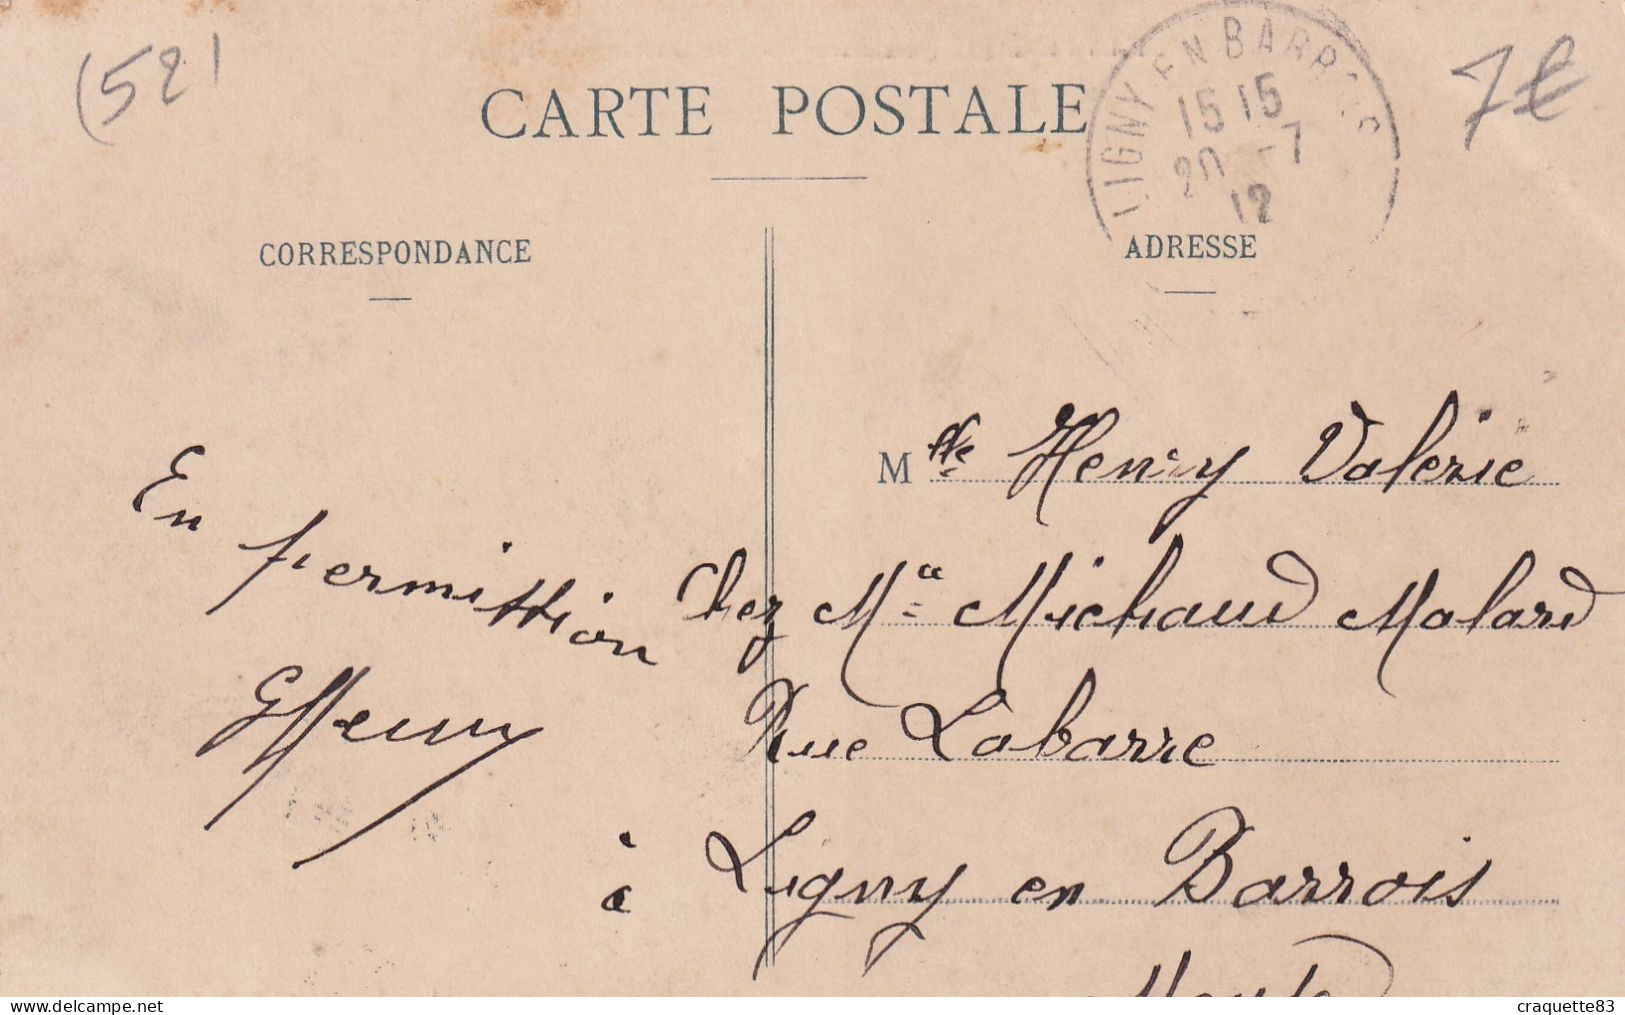 (52)
7€
CARTE POSTALE
LIGNY EN BARROIS
15 15
20 -7
12
CORRESPONDANCE
ADRESSE
En permission
GHenry
Mlle Henry Valérie
Chez Me Michaud Malard
Rue Labarre
à Ligny en Barrois
www.delcampe.net
craquette83